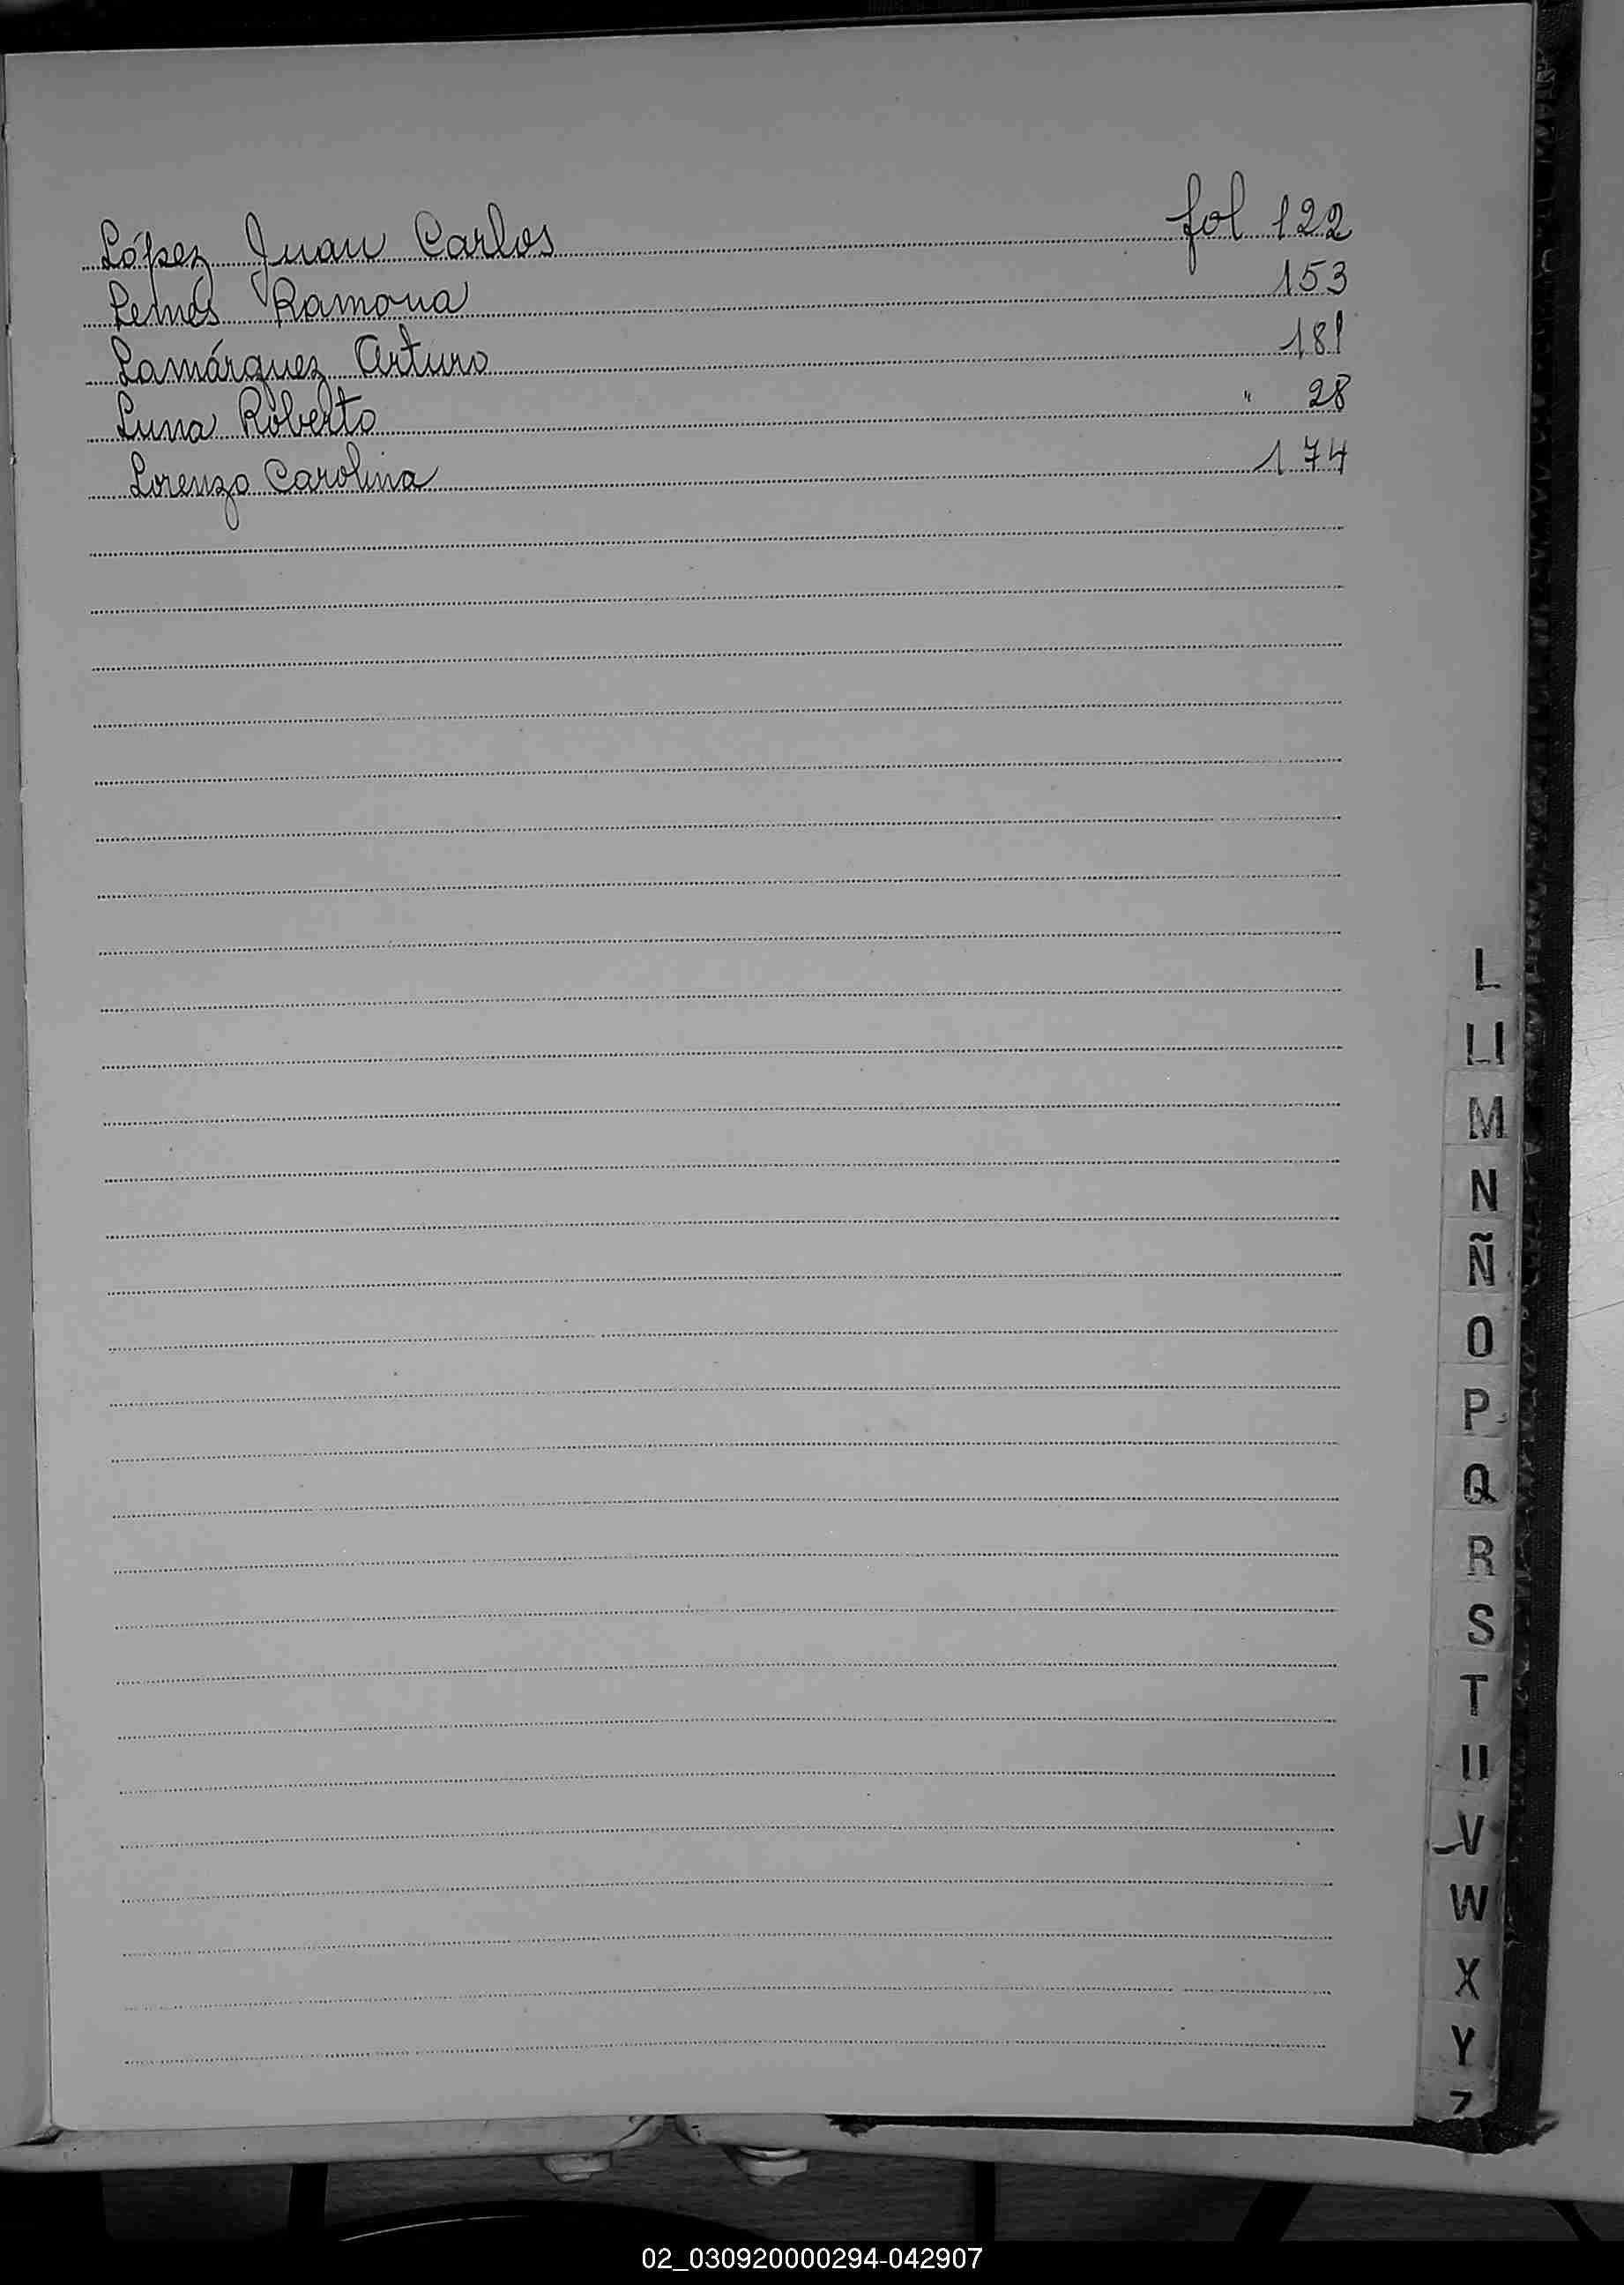 López Juan Carlos fol 122
Lemos Ramona 153
Lamárquez Arturo 181
Luna Roberto " 28
Lorenzo Carolina 174
L
Ll
M
N
Ñ
O
P
Q
R
S
T
U
V
W
X
Y
Z
02_030920000294-042907